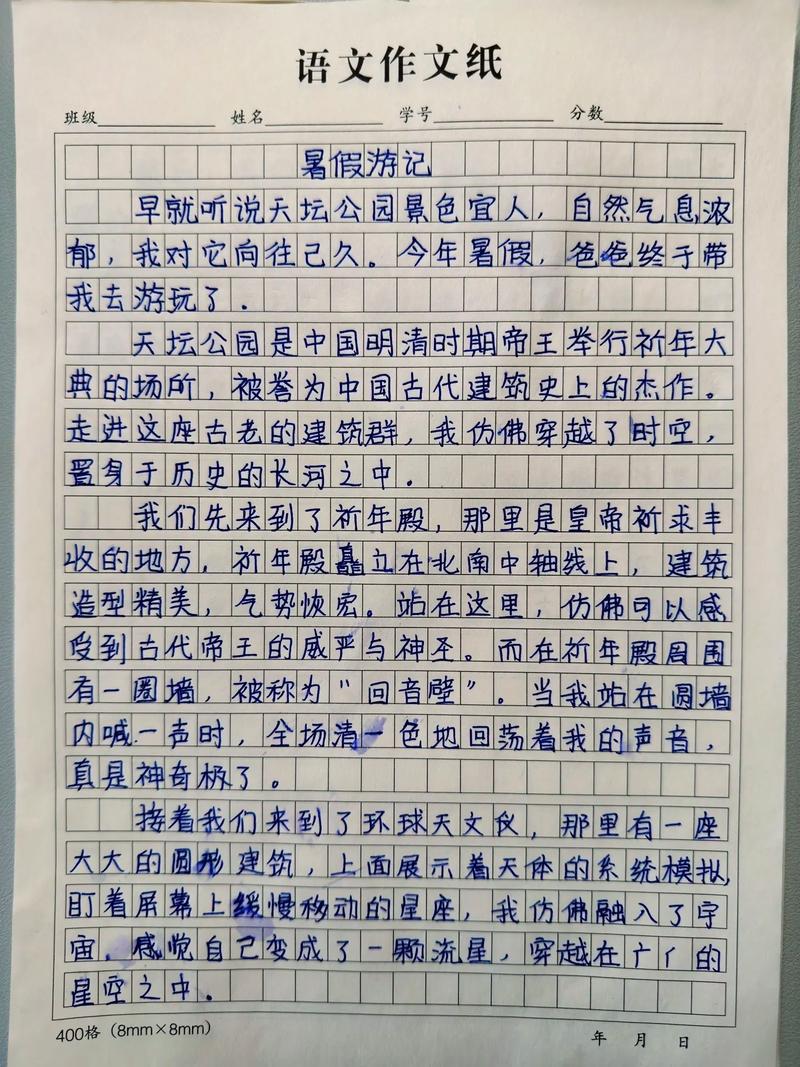 语文作文纸
班级 姓名 学号 分数
暑假游记
早就听说天坛公园景色宜人，自然气息浓
郁，我对它向往己久。今年暑假，爸爸终于带
我去游玩了．
天坛公园是中国明清时期帝王举行祈年大
典的场所，被誉为中国古代建筑史上的杰作。
走进这座古老的建筑群，我仿佛穿越了时空，
置身于历史的长河之中．
我们先来到了祈年殿，那里是皇帝祈求丰
收的地方，祈年殿矗立在北南中轴线上，建筑
造型精美，气势恢宏。站在这里，仿佛可以感
受到古代帝王的威严与神圣。而在祈年殿周围
有一圈墙，被称为“回音壁”。当我站在圆墙
内喊一声时，全场清一色地回荡着我的声音，
真是神奇极了。
接着我们来到了环球天文仪，那里有一座
大大的圆形建筑，上面展示着天体的系统模拟，
盯着屏幕上缓慢移动的星座，我仿佛融入了宇
宙．感觉自己变成了一颗流星，穿越在广的
星空之中．
400格（8mm×8mm） 年 月 日